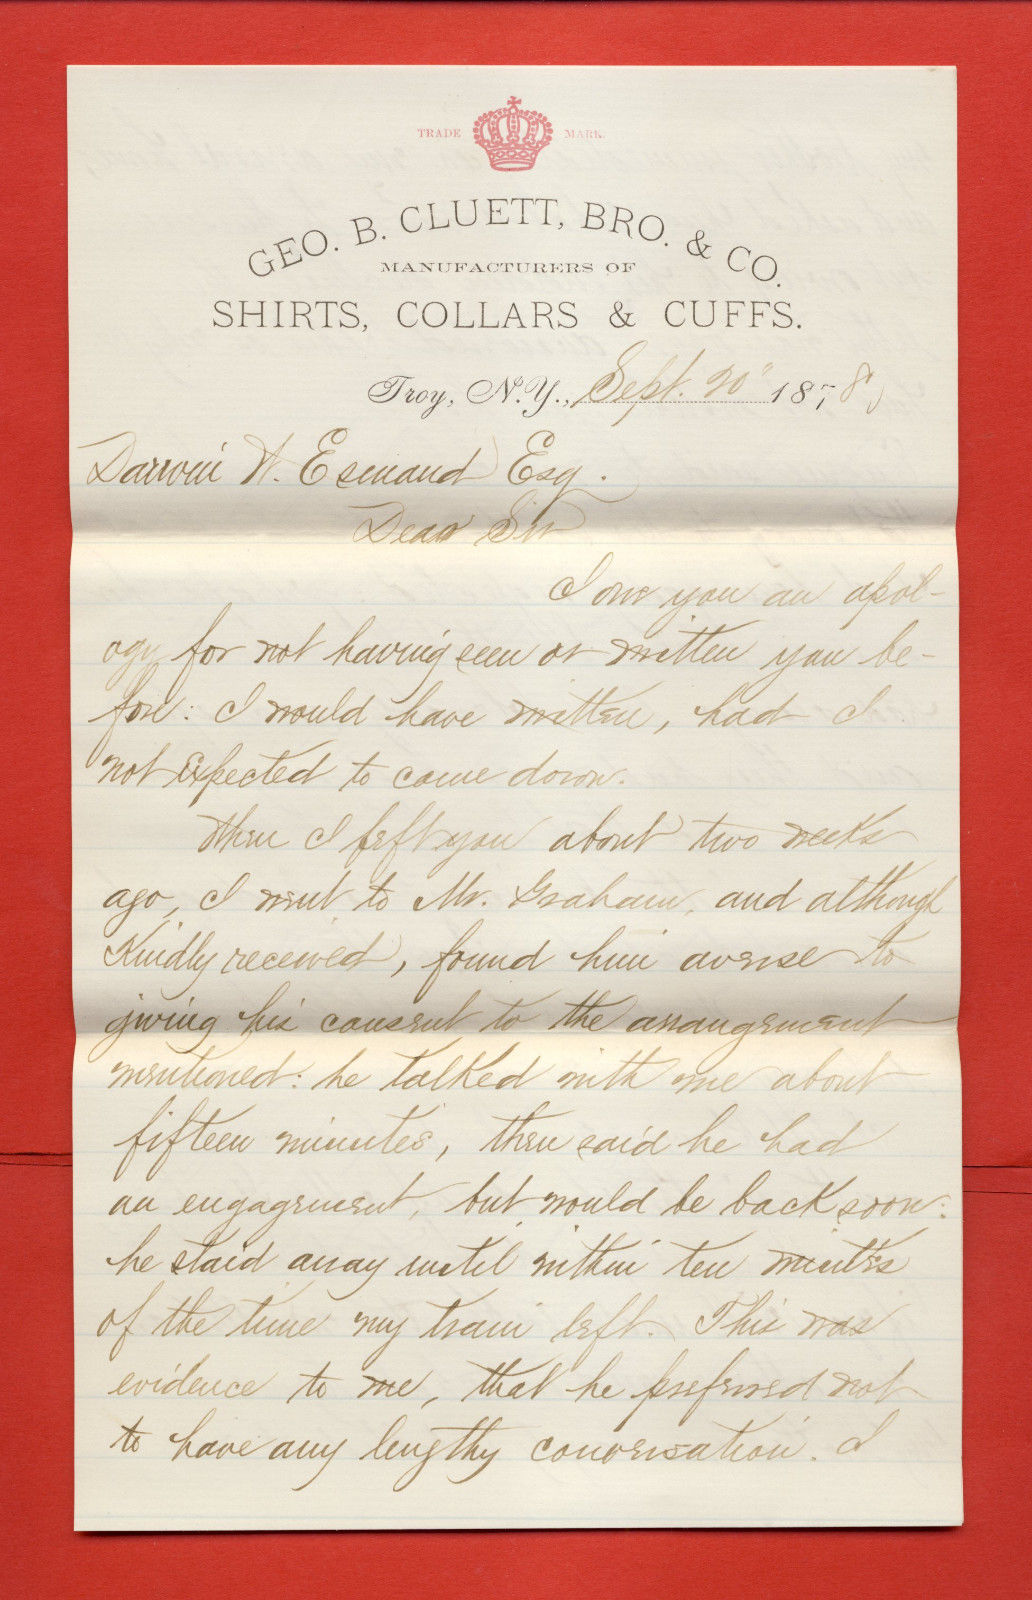 TRADE MARK.
GEO. B. CLUETT, BRO. & CO.
MANUFACTURERS OF
SHIRTS, COLLARS & CUFFS.
Troy, N.Y., Sept. 20" 1878
Darwin W. Esmond Esq.
Dear Sir
I owe you an apol-
ogy for not having seen or written you be-
fore: I would have written, had I
not expected to come down.
When I left you about two weeks
ago, I went to Mr. Graham, and although
Kindly received, found him averse to
giving his consent to the arrangement
mentioned: he talked with me about
fifteen minutes, then said he had
an engagement, but would be back soon:
he staid away until within ten minutes
of the time my train left. This was
evidence to me, that he preferred not
to have any lengthy conversation. I